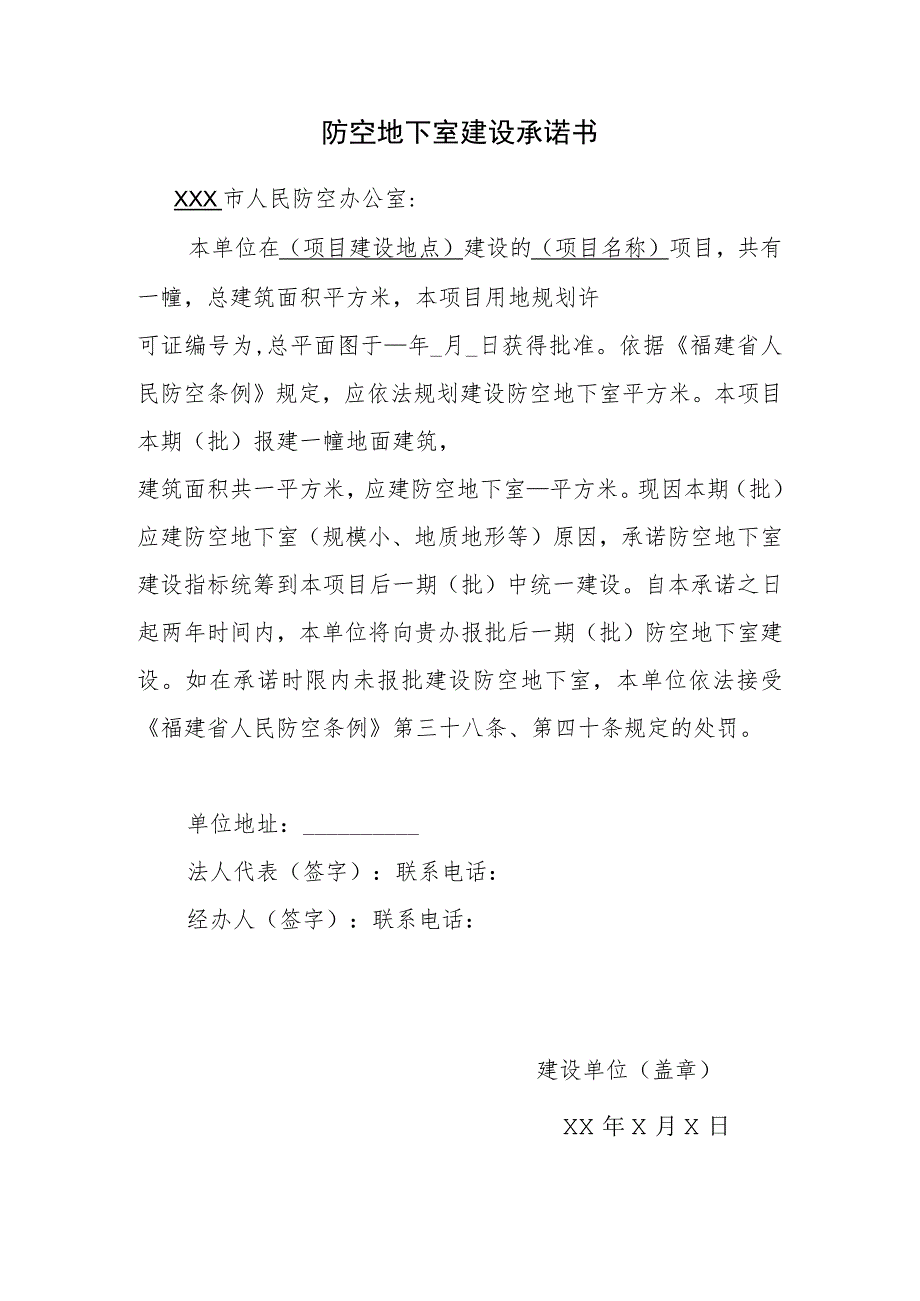 防空地下室建设承诺书
XXX市人民防空办公室:
本单位在（项目建设地点）建设的（项目名称）项目，共有
一幢，总建筑面积平方米，本项目用地规划许
可证编号为,总平面图于—年_月_日获得批准。依据《福建省人
民防空条例》规定，应依法规划建设防空地下室平方米。本项目
本期（批）报建一幢地面建筑，
建筑面积共一平方米，应建防空地下室—平方米。现因本期（批）
应建防空地下室（规模小、地质地形等）原因，承诺防空地下室
建设指标统筹到本项目后一期（批）中统一建设。自本承诺之日
起两年时间内，本单位将向贵办报批后一期（批）防空地下室建
设。如在承诺时限内未报批建设防空地下室，本单位依法接受
《福建省人民防空条例》第三十八条、第四十条规定的处罚。
单位地址：__________
法人代表（签字）：联系电话：
经办人（签字）：联系电话：
建设单位（盖章）
XX 年 X 月 X 日